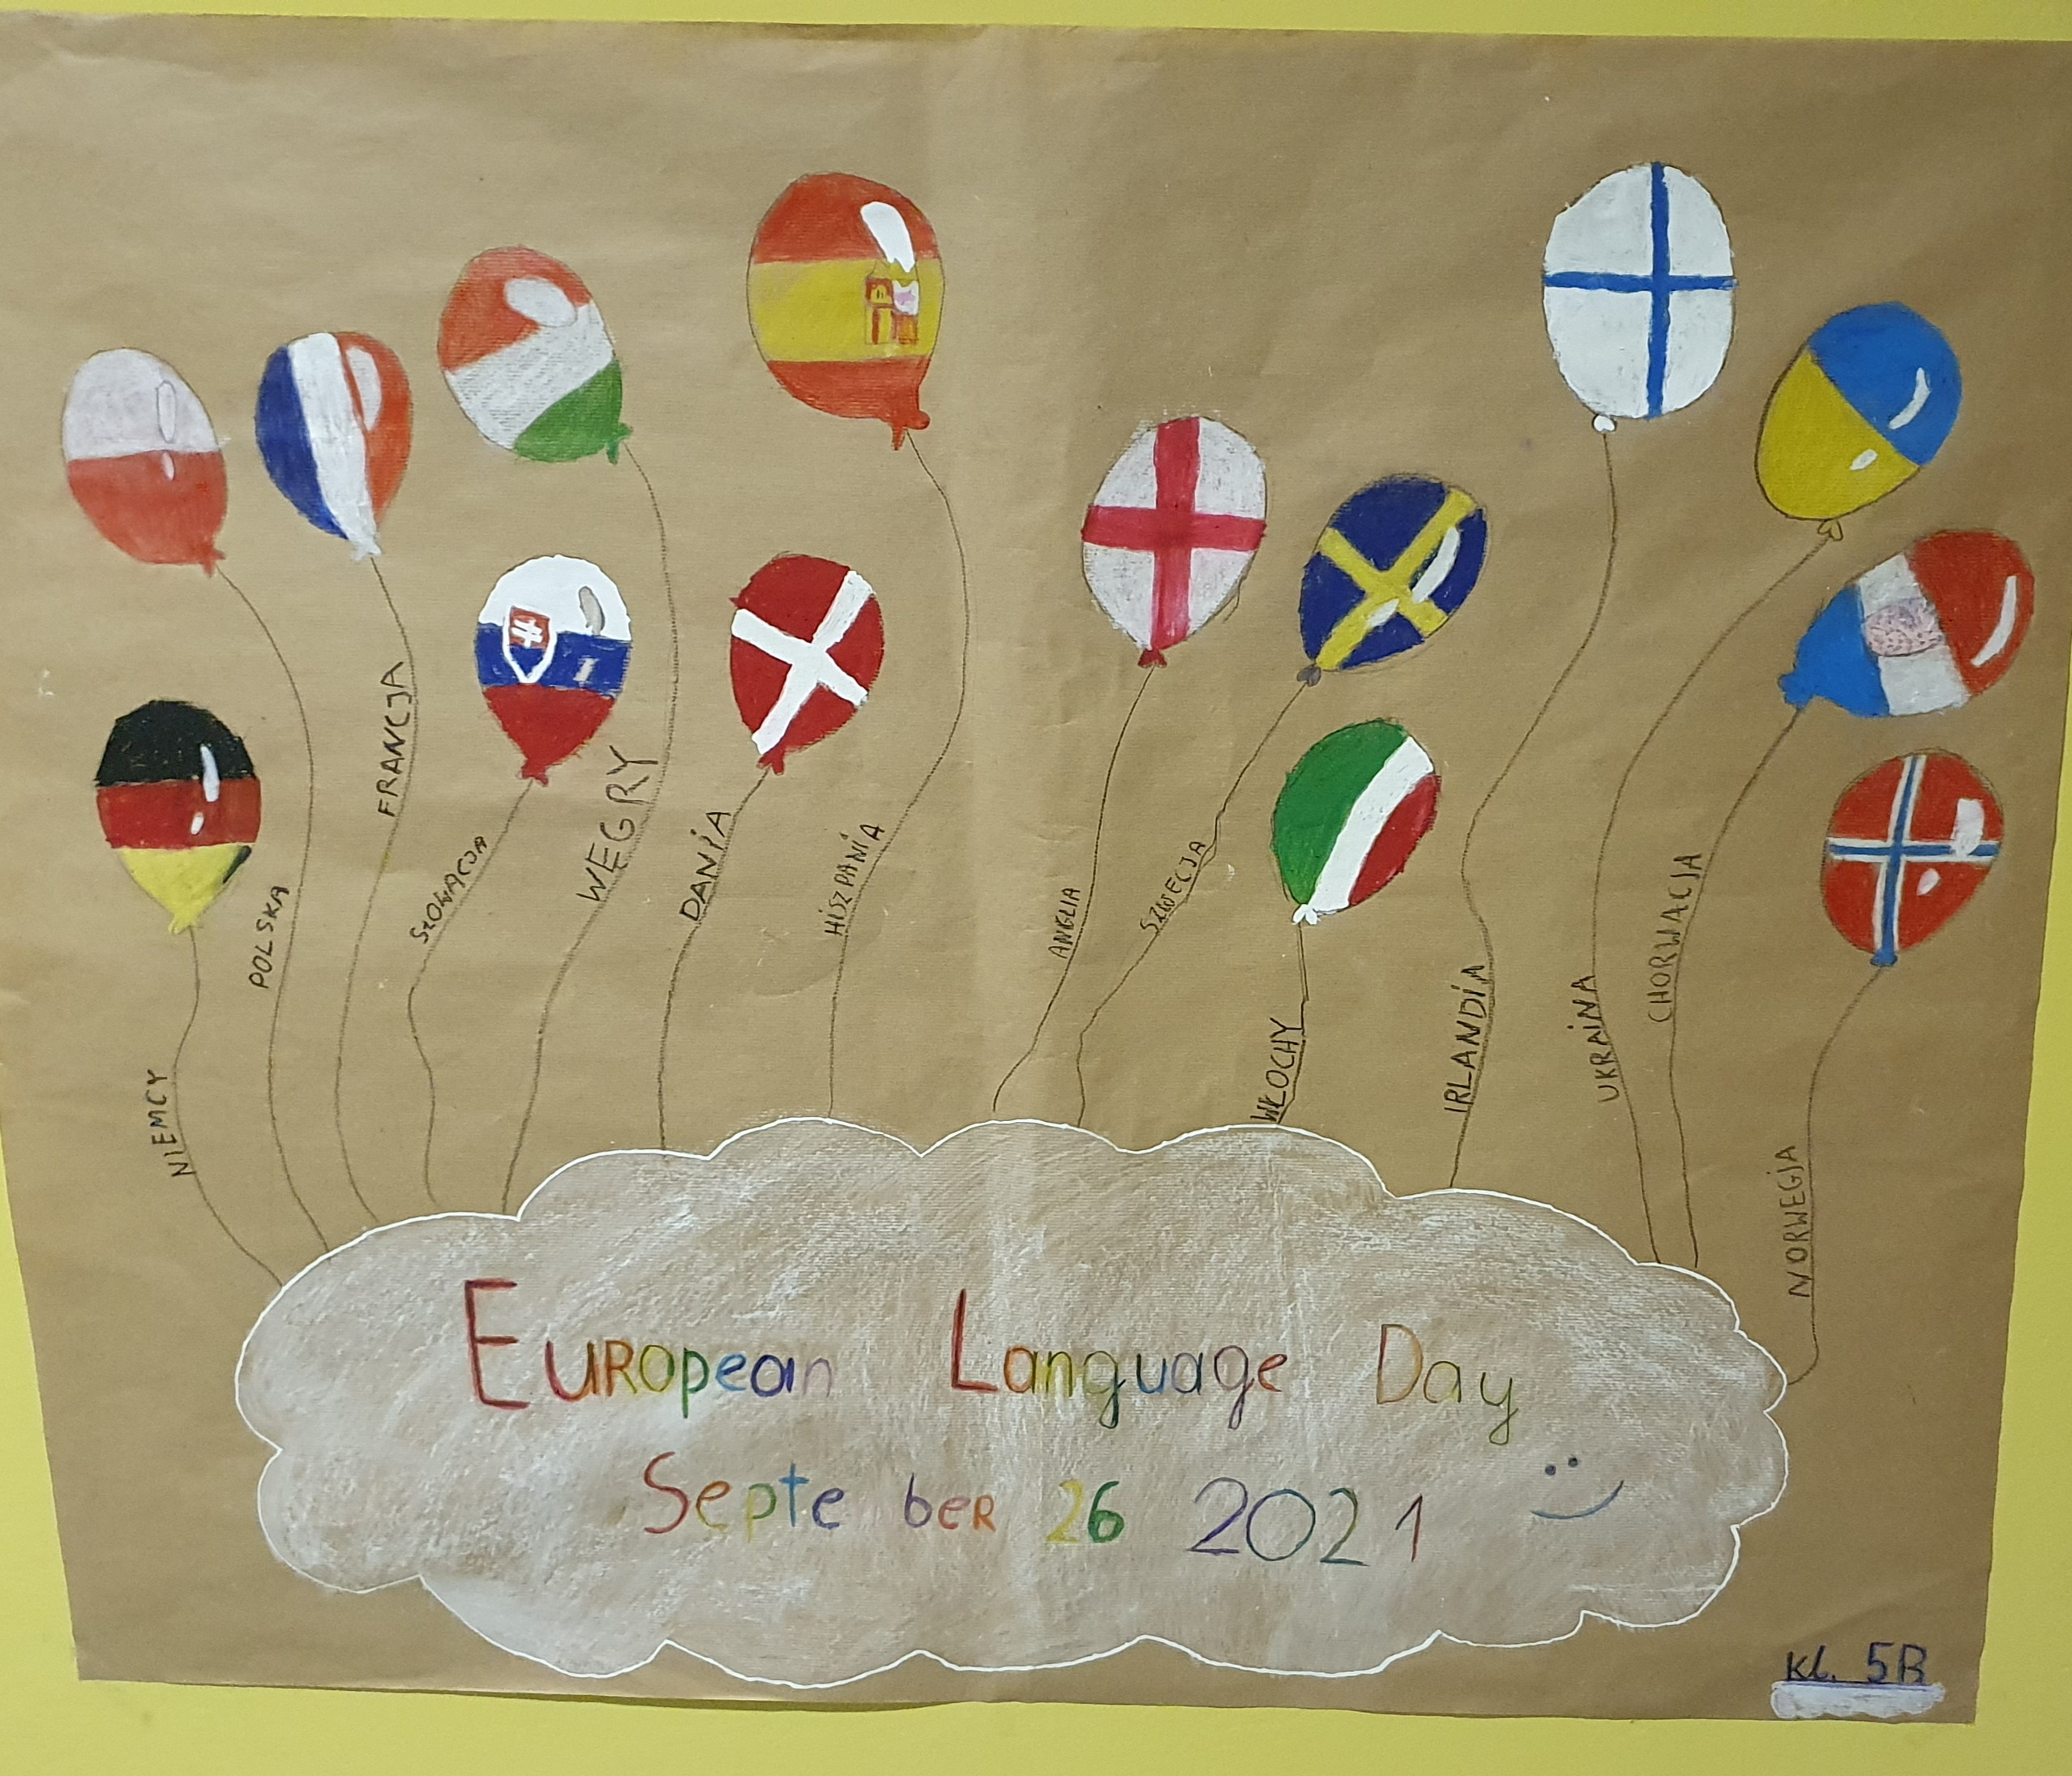 NIEMCY
POLSKA
FRANCJA
SŁOWACJA
WĘGRY
DANIA
HISZPANIA
ANGLIA
SZWECJA
WŁOCHY
IRLANDIA
UKRAINA
CHORWACJA
NORWEGJA
European Language Day
Septe ber 26 2021
kl. 5B